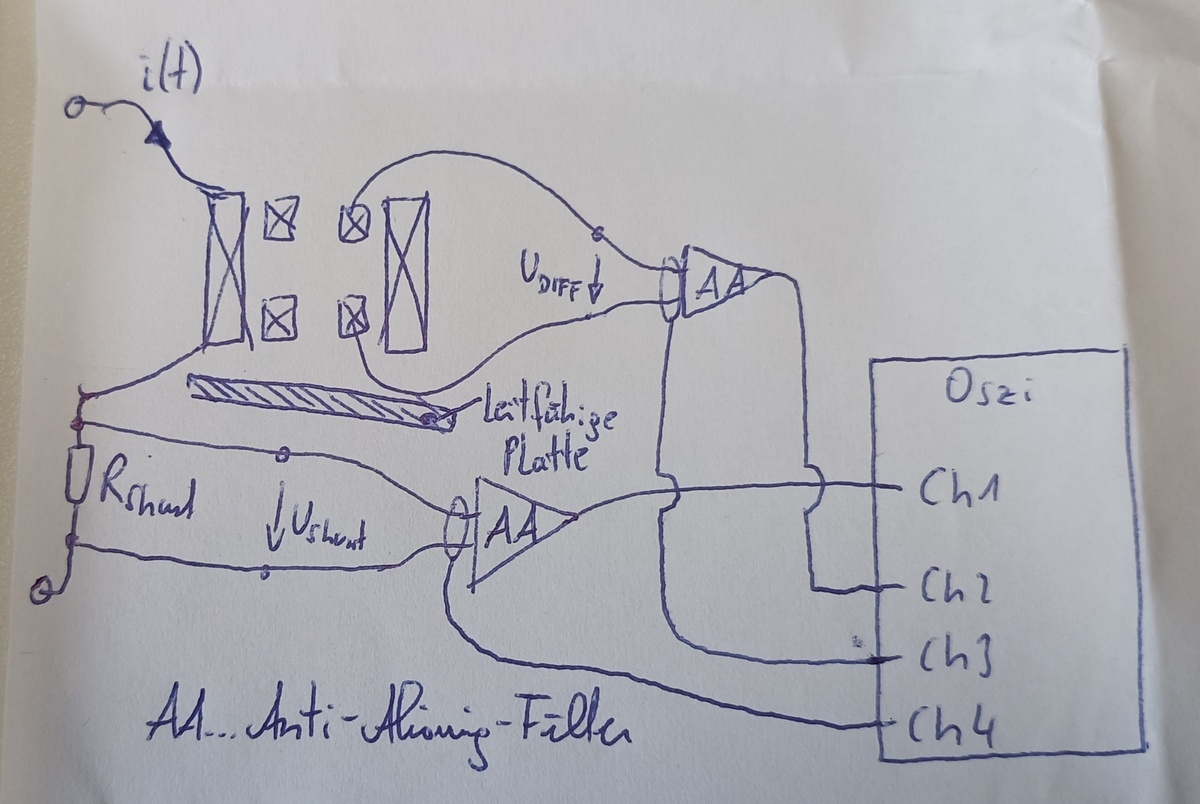 i(t)
U_DIFF
AA
Oszi
Leitfähige
Platte
R_Shunt
U_Shunt
AA
Ch1
Ch2
Ch3
Ch4
AA... Anti-Aliasing-Filter